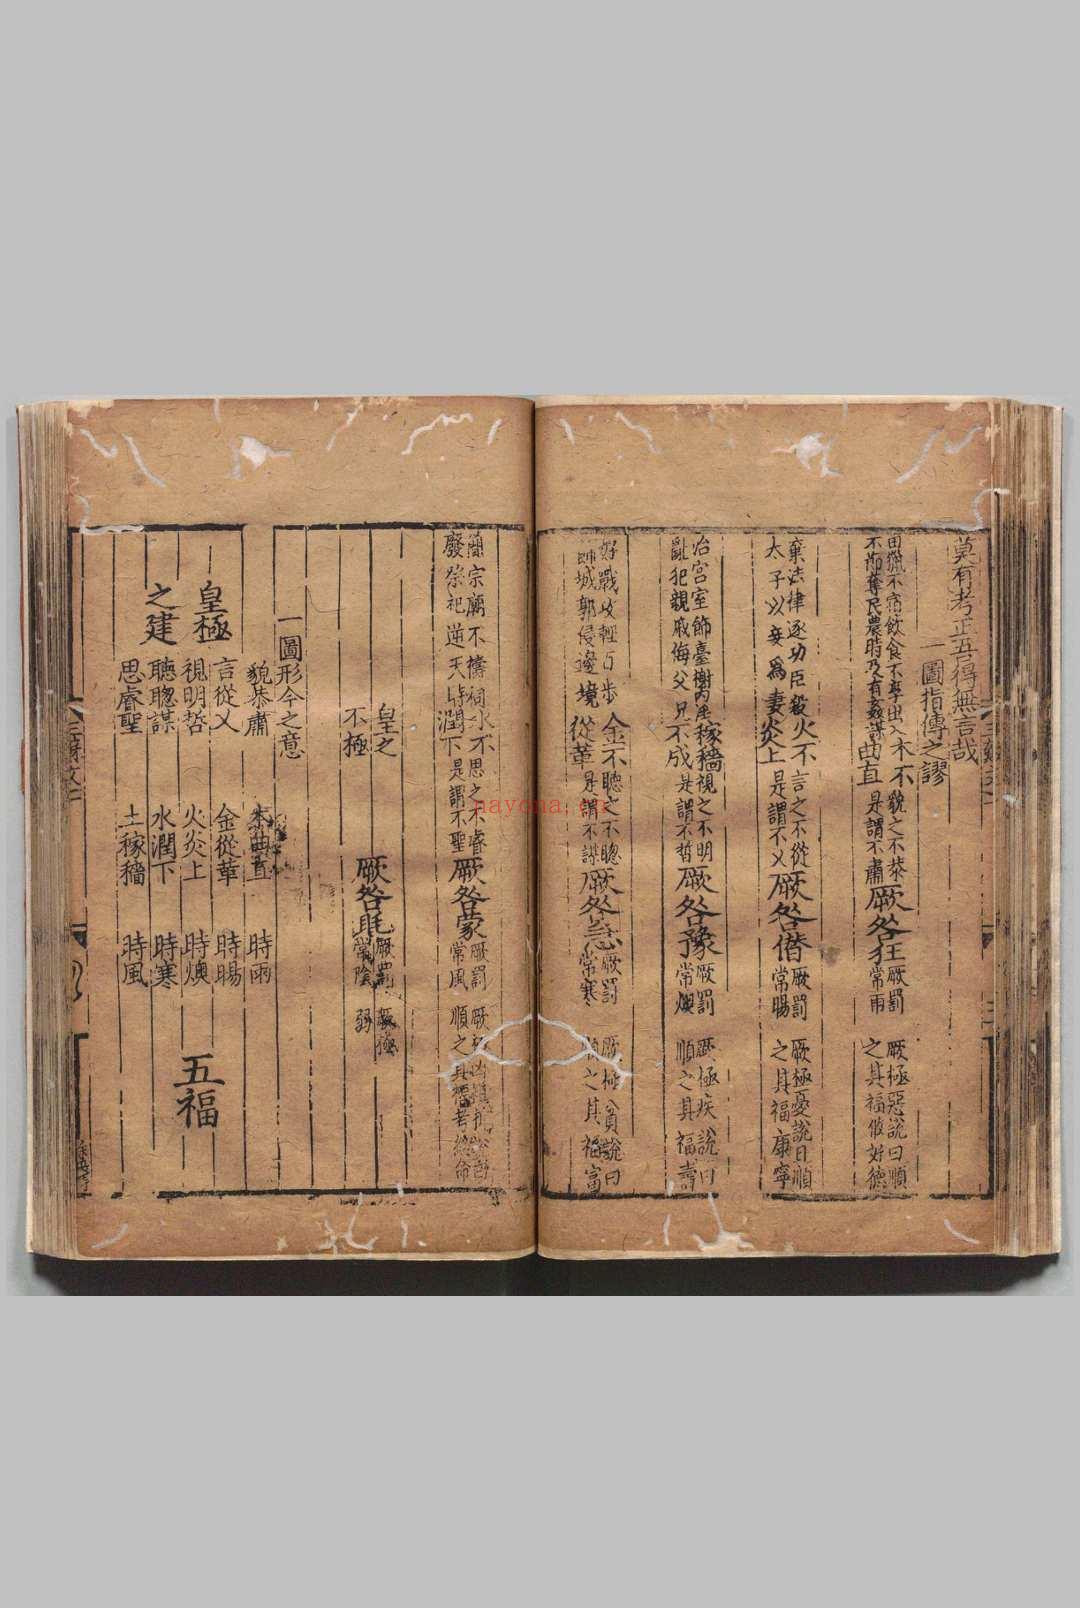 莫有考正吾得無言哉
一圖指傳之謬
田獵不宿飲食不享出入
不節奪民農時乃有姦謀
木不
曲直
貌之不恭
是謂不肅
厥咎狂
厥罰
常雨
厥極惡說曰順
之其福攸好德
棄法律逐功臣殺
太子以妾為妻
火不
炎上
言之不從
是謂不乂
厥咎僭
厥罰
常暘
厥極憂說曰順
之其福康寧
治宮室飾臺榭內淫
亂犯親戚侮父兄
稼穡
不成
視之不明
是謂不哲
厥咎豫
厥罰
常燠
厥極疾說曰
順之其福壽
好戰攻輕百步
飾城郭侵邊境
金不
從革
聽之不聰
是謂不謀
厥咎急
厥罰
常寒
厥極貧說曰
順之其福富
簡宗廟不禱祠
廢祭祀逆天時
水不
潤下
思之不睿
是謂不聖
厥咎蒙
厥罰
常風
順之其福考終命
皇之
不極
厥咎眊
厥罰
常陰
厥極
弱
一圖形今之意
皇極
之建
貌恭肅
木曲直
時雨
言從乂
金從革
時暘
視明哲
火炎上
時燠
聽聰謀
水潤下
時寒
思睿聖
土稼穡
時風
五福
nayona.cn